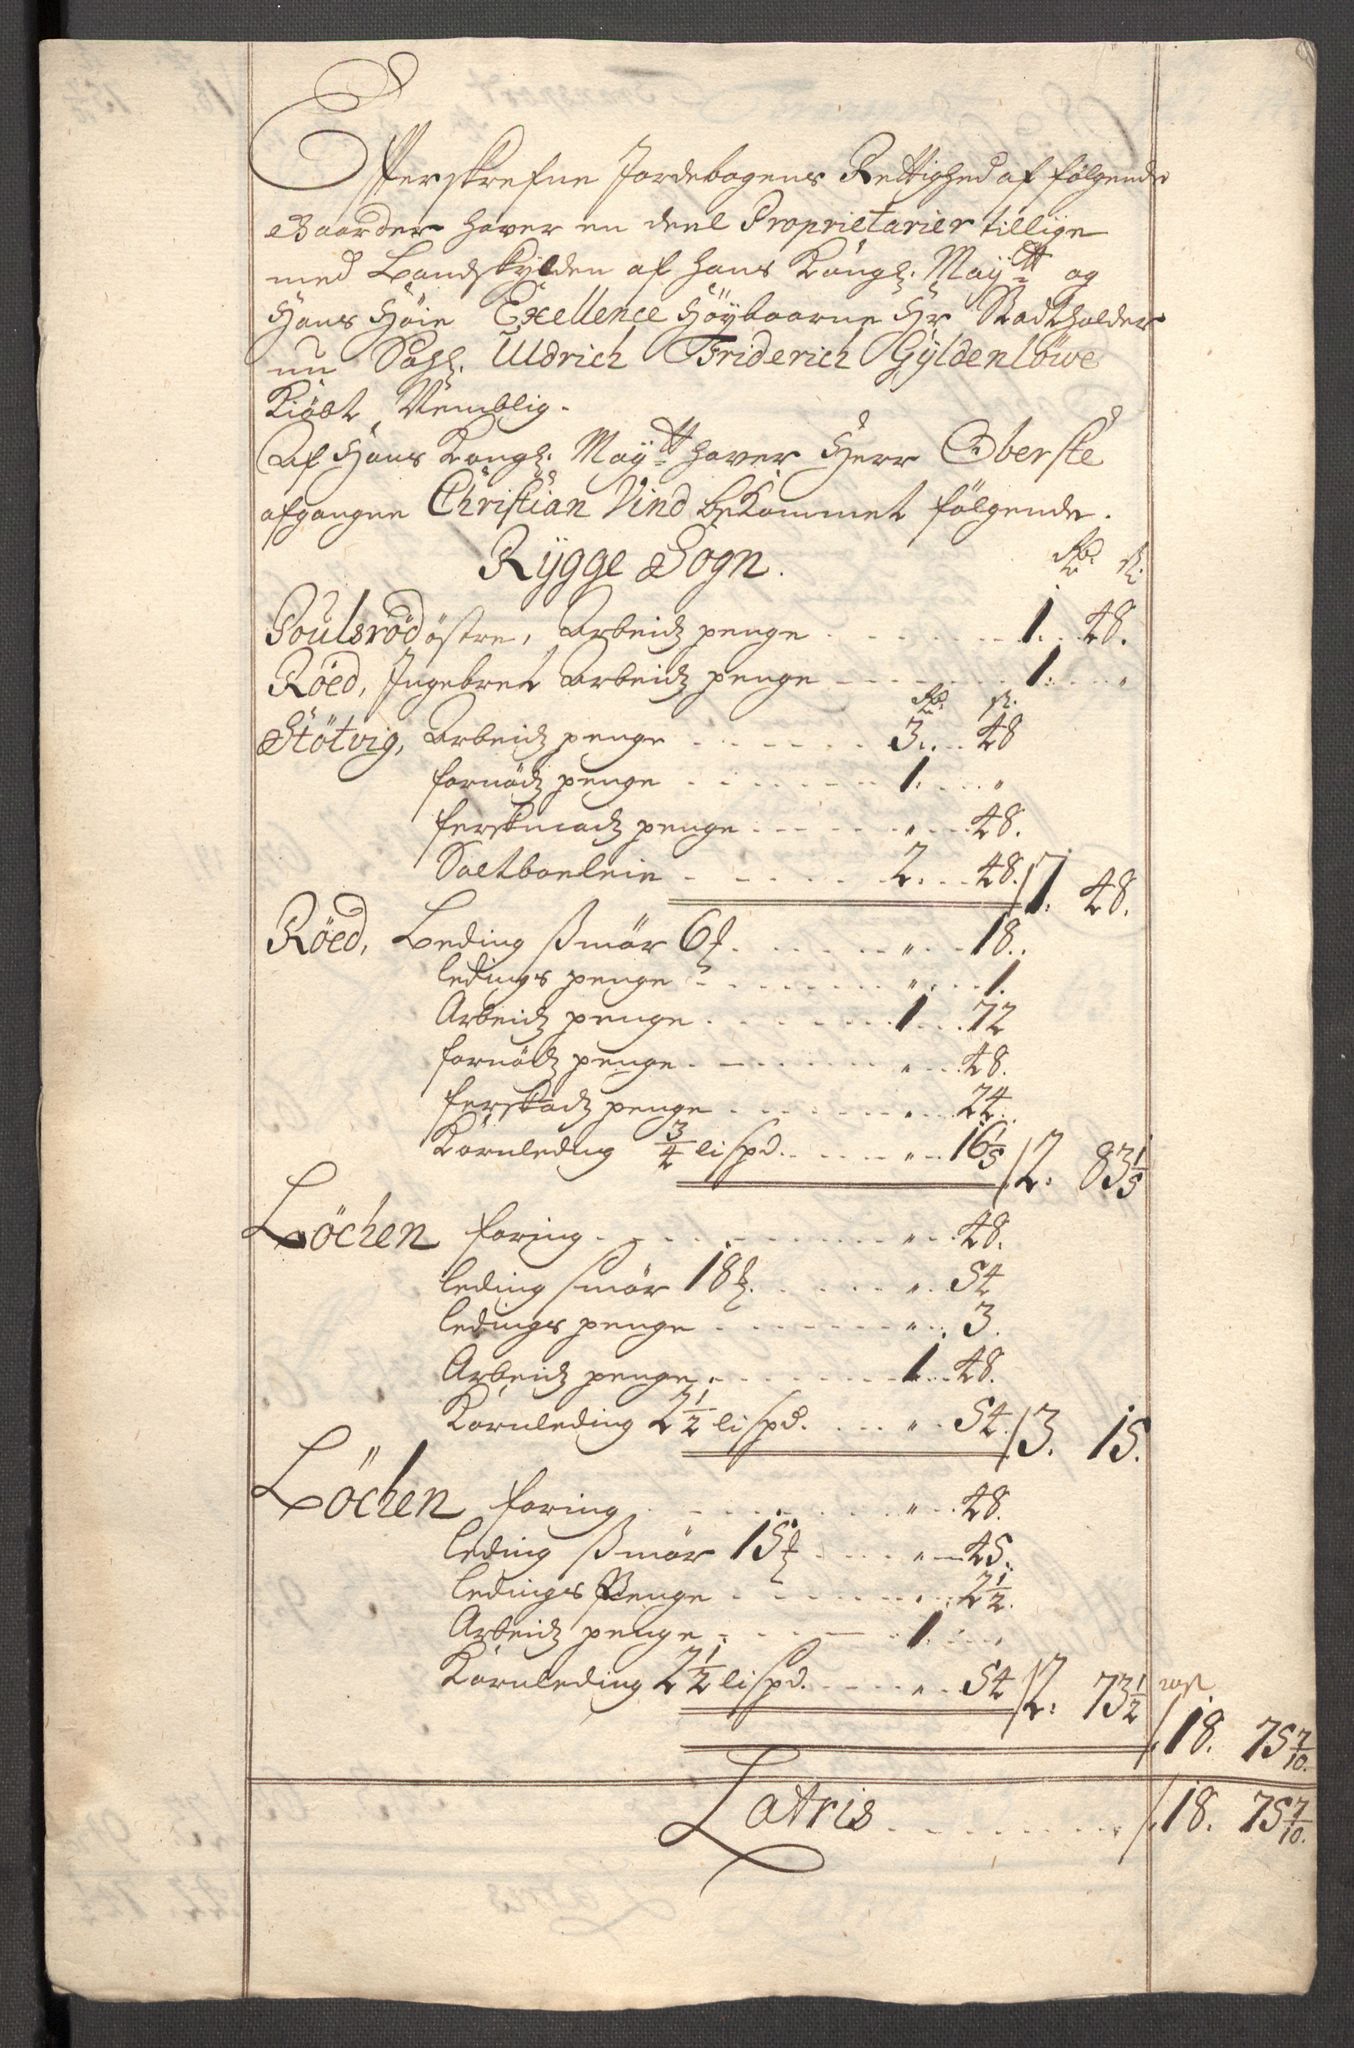 Efterskrefne Jordebogens Rettighed af følgende
Gaarder haver en deel Proprietarier tillige
med Landskylden af Hans Kongl. May:tt og
Hans Høie Excellence Höybaarne Hr Stadtholder
nu Sahl. Uldrich Friderich Gÿldenlöwe
Kiøbt, Nemblig.
Af Hans Kongl: May:tt haver Herr Oberste
afgangne Christian Vind bekommet følgende.
Rÿgge Sogn. Rd. s.
Poulsröd östre, Arbeids penge 1. 48.
Röed, Ingebret Arbeids penge 1. "
Rd. s.
Stötvig, Arbeids penge 3. 48
fornöds penge 1. "
ferskmads penge " 48.
Saltboeleie 2. 48. / 7. 48.
Röed, Leding smör 6 " 18.
ledings penge " 1.
Arbeids penge 1. 72
fornöds penge " 48.
ferskads penge " 24.
Kornleding 3/4 lispd. " 16 1/5 / 2. 83 1/5
Löchen foring " 48.
leding smör 18 " 54
ledings penge " 3.
Arbeids penge 1. 48.
Kornleding 2 1/2 lispd. " 54. / 3. 15.
Löchen foring " 48.
leding smör 15 " 45.
ledings Penge " 2 1/2.
Arbeids penge 1. "
Kornleding 2 1/2 lispd. " 54 / 2. 73 1/2
/ 18. 75 7/10.
Latris / 18. 75 7/10.